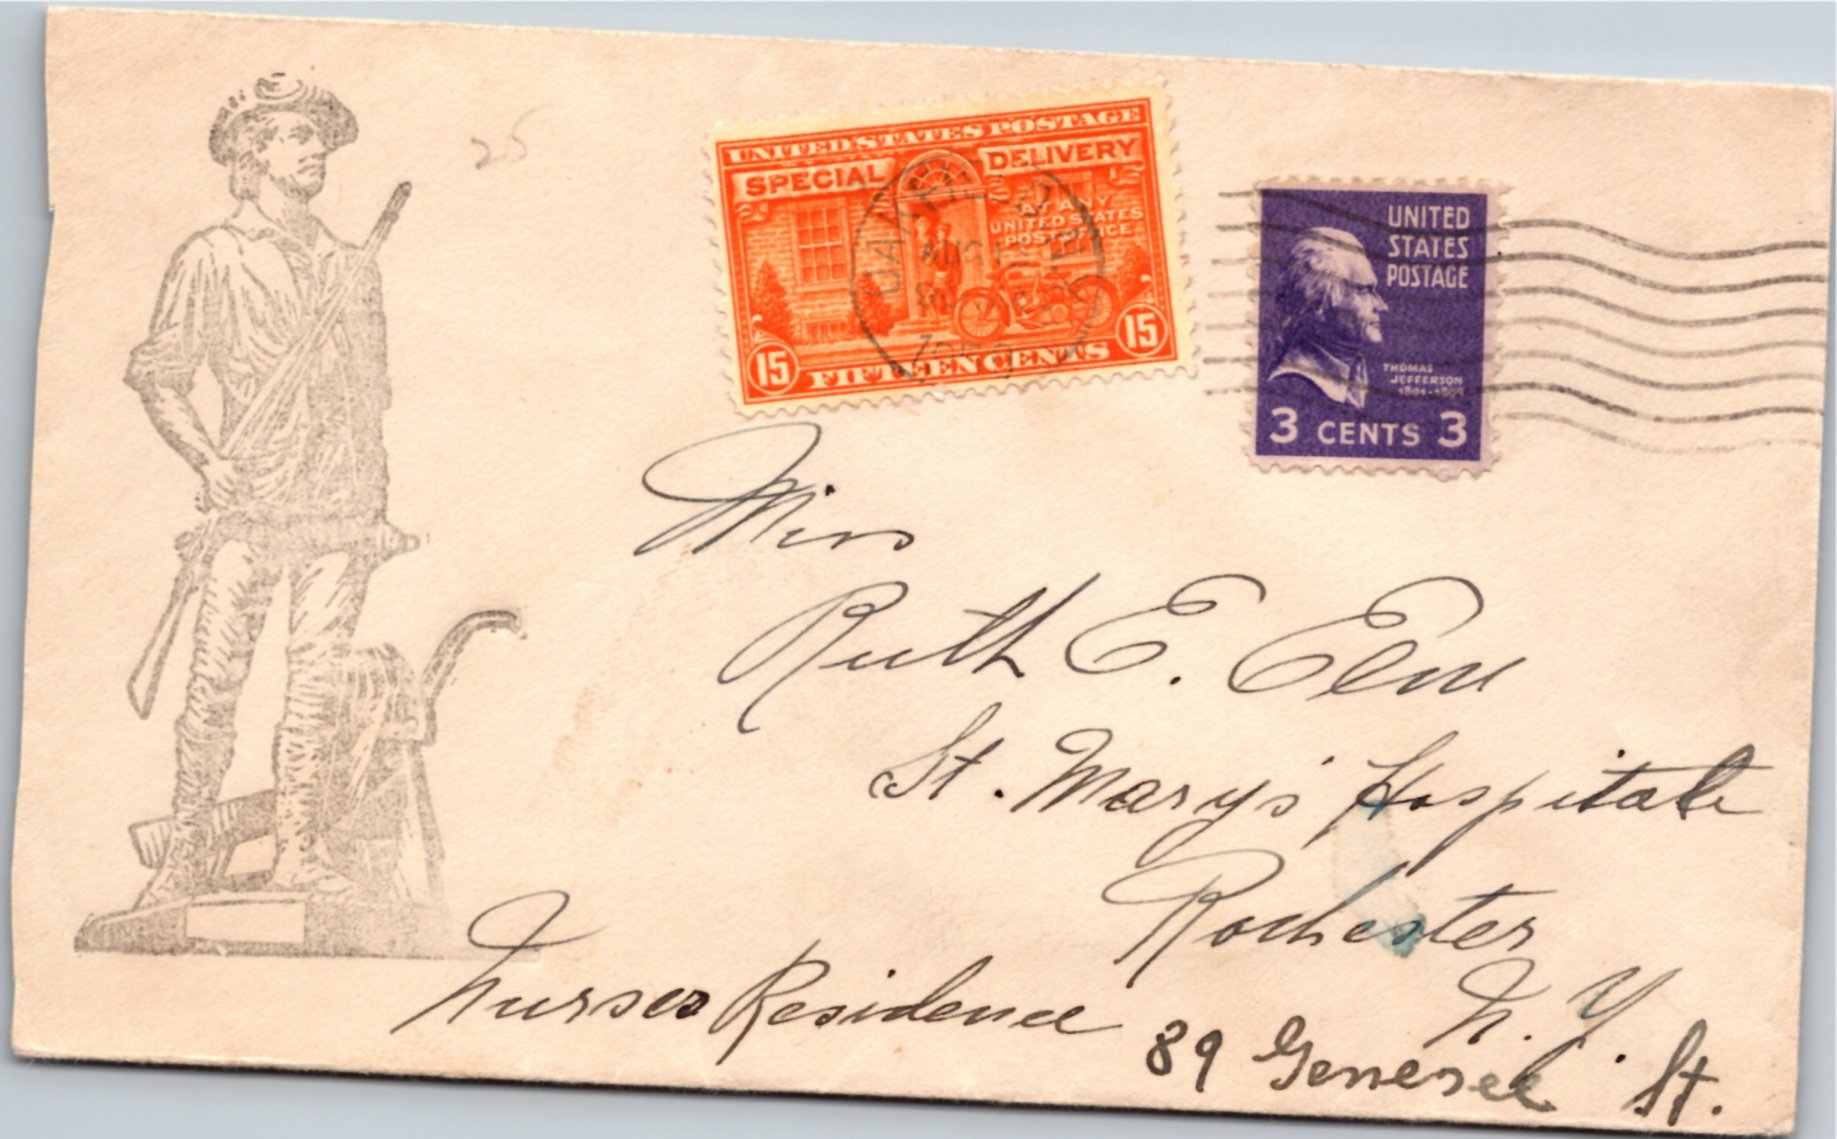 25
UNITED STATES POSTAGE
SPECIAL DELIVERY
AT ANY
UNITED STATES
POST OFFICE
15 FIFTEEN CENTS 15
UNITED
STATES
POSTAGE
THOMAS
JEFFERSON
1801-1809
3 CENTS 3
Miss
Ruth E. Elm
St. Mary's Hospital
Rochester
N.Y.
Nurses Residence
89 Genesee St.